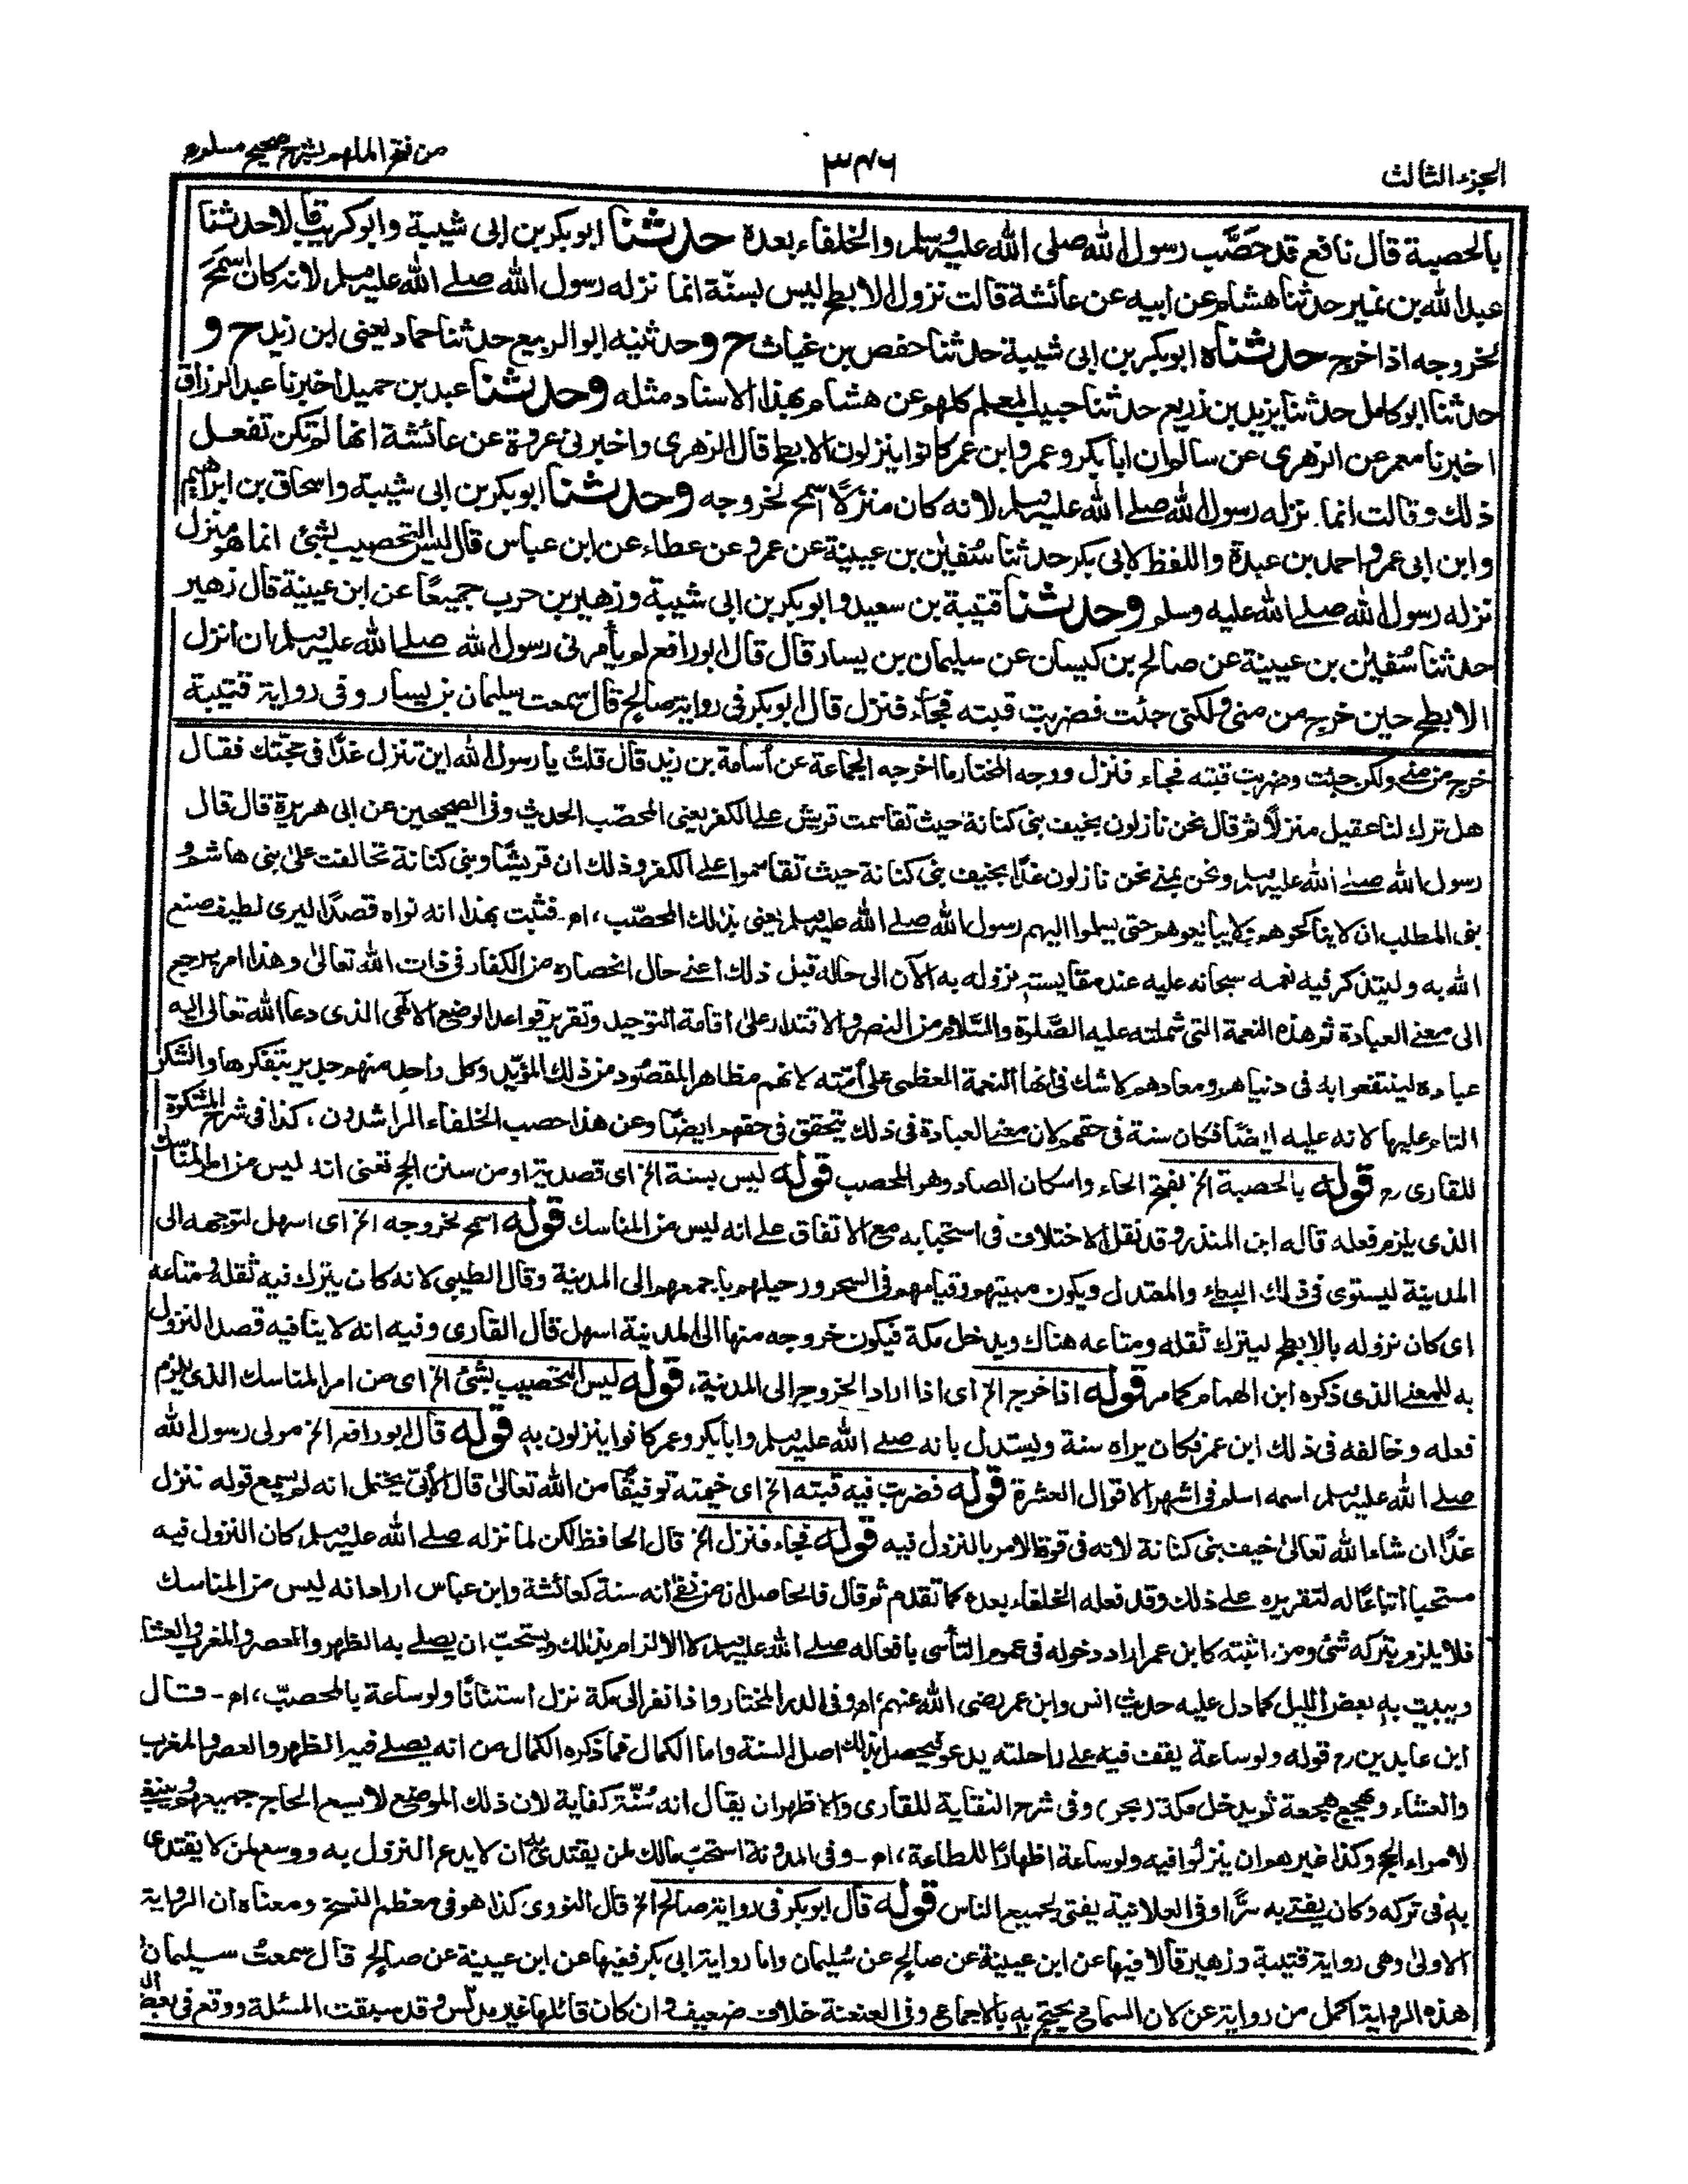 الجزء الثالث
٣٤٦
من فتح الملهم بشرح صحيح مسلم
بالحصبة قال نافع قد حَصَّب رسول الله صلى الله عليه وسلم والخلفاء بعده حدثنا ابوبكر بن ابى شيبة وابوكريب قالا حدثنا
عبد الله بن نمير حدثنا هشام عن ابيه عن عائشة قالت نزول الابطح ليس بسنّة انما نزله رسول الله صلے الله عليه وسلم لانه كان اَسْمَحَ
لخروجه اذا خرج حدثناه ابوبكر بن ابى شيبة حدثنا حفص بن غياث ح وحدثنيه ابو الربيع حدثنا حماد يعنى ابن زيد ح و
حدثنا ابو كامل حدثنا يزيد بن زريع حدثنا حبيب المعلم كلهم عن هشام بهذا الاسناد مثله وحدثنا عبد بن حميد اخبرنا عبد الرزاق
اخبرنا معمر عن الزهرى عن سالم ان ابا بكر وعمر وابن عمر كانوا ينزلون الابطح قال الزهرى واخبرنى عروة عن عائشة انها لم تكن تفعل
ذلك وقالت انما نزله رسول الله صلے الله عليه وسلم لانه كان منزلًا اسمح لخروجه وحدثنا ابوبكر بن ابى شيبة واسحاق بن ابراهيم
وابن ابى عمر واحمد بن عبدة واللفظ لابى بكر حدثنا سُفيٰن بن عيينة عن عمرو عن عطاء عن ابن عباس قال ليس التحصيب بشئ انما هو منزل
نزله رسول الله صلے الله عليه وسلم وحدثنا قتيبة بن سعيد وابوبكر بن ابى شيبة وزهير بن حرب جميعًا عن ابن عيينة قال زهير
حدثنا سُفيٰن بن عيينة عن صالح بن كيسان عن سليمان بن يسار قال قال ابو رافع لم يأمرنى رسول الله صلے الله عليه وسلم ان انزل
الابطح حين خرج من منى ولكنى جئت فضربت قبته فجاء فنزل قال ابوبكر فى رواية صالح قال سمعت سليمان بن يسار وفى رواية قتيبة
خرج من منے ولكن جئت وضربت قبته فجاء فنزل ووجه المختار ما اخرجه الجماعة عن أسامة بن زيد قال قلت يا رسول الله اين تنزل غدًا فى حجّتك فقال
هل ترك لنا عقيل منزلًا ثم قال نحن نازلون بخيف بنى كنانة حيث تقاسمت قريش على الكفر يعنى المحصّب الحديث وفى الصحيحين عن ابى هريرة قال قال
رسول الله صلے الله عليه وسلم ونحن بمنے نحن نازلون غدًا بخيف بنى كنانة حيث تقاسموا على الكفر وذلك ان قريشًا وبنى كنانة تحالفت على بنى هاشم و
بنى المطلب ان لا يناكحوهم ولا يبايعوهم حتى يسلموا اليهم رسول الله صلے الله عليه وسلم يعنى بذلك المحصّب، اھ۔ فثبت بهذا انه نواه قصدًا ليرى لطيف صنع
الله به وليتذكر فيه نعمه سبحانه عليه عند مقايسته نزوله به الآن الى حاله قبل ذلك اعنے حال انحصاره من الكفار فى ذات الله تعالى وهذا امر يرجع
الى معنے العبادة ثم هذه النعمة التى شملته عليه الصّلوة والسّلام من النصر والاقتدار على اقامة التوحيد وتقرير قواعد الوضع الالٰهى الذى دعا الله تعالى اليه
عباده لينتفعوا به فى دنياهم ومعادهم لا شك فى انها النعمة العظمى على أمّته لانهم مظاهر المقصُود من ذلك المؤيّد وكل واحد منهم جدير بتفكرها والشكر
التام عليها لانه عليه ايضًا فكان سنة فى حقهم لان معنے العبادة فى ذلك يتحقق فى حقهم ايضًا وعن هذا حصب الخلفاء الراشدون، كذا فى شرح المشكوة
للقارى رح قوله بالحصبة الخ بفتح الحاء واسكان الصاد وهو المحصب قوله ليس بسنة الخ اى قصدية او من سنن الحج تعنى انه ليس من امر المناسك
الذى يلزم فعله قاله ابن المنذر وقد نقل الاختلاف فى استحبابه مع الاتفاق على انه ليس من المناسك قوله اسمح لخروجه الخ اى اسهل لتوجهه الى
المدينة ليستوى فى ذلك البطئ والمعتدل ويكون مبيتهم وقيامهم فى السحر ورحيلهم باجمعهم الى المدينة وقال الطيبى لانه كان يترك فيه ثقله ومتاعه
اى كان نزوله بالابطح ليترك ثقله ومتاعه هناك ويدخل مكة فيكون خروجه منها الى المدينة اسهل قال القارى وفيه انه لا ينافيه قصد النزول
به للمعنے الذى ذكره ابن الهمام كما مر قوله اذا خرج الخ اى اذا اراد الخروج الى المدينة، قوله ليس التحصيب بشئ الخ اى من امر المناسك الذى يلزم
فعله وخالفه فى ذلك ابن عمر فكان يراه سنة ويستدل بانه صلے الله عليه وسلم وابا بكر وعمر كانوا ينزلون به قوله قال ابو رافع الخ مولى رسول الله
صلے الله عليه وسلم، اسمه اسلم فى اشهر الاقوال العشرة قوله فضربت فيه قبته الخ اى خيمته توفيقًا من الله تعالى قال الأبّى يحتمل انه لم يسمع قوله ننزل
غدًا ان شاء الله تعالى خيف بنى كنانة لانه فى قوة الامر بالنزول فيه قوله فجاء فنزل الخ قال الحافظ لكن لما نزله صلے الله عليه وسلم كان النزول فيه
مستحبا اتباعًا له لتقريره على ذلك وقد فعله الخلفاء بعده كما تقدم ثم قال فالحاصل ان من نفى انه سنة كعائشة وابن عباس اراد انه ليس من المناسك
فلا يلزم بتركه شئ ومن اثبته كابن عمر اراد دخوله فى عموم التأسى بافعاله صلے الله عليه وسلم لا الالزام بذلك ويستحبّ ان يصلے به الظهر والعصر والمغرب والعشاء
ويبيت به بعض الليل كما دل عليه حديث انس وابن عمر رضى الله عنهم، اھ وفى الدر المختار واذا نفر الى مكة نزل استنانًا ولو ساعة بالمحصبّ، اھ۔ قال
ابن عابدين رح قوله ولو ساعة يقف فيه على راحلته يدعو فيحصل بذلك اصل السنة واما الكمال فما ذكره الكمال من انه يصلے فيه الظهر والعصر والمغرب
والعشاء ويهجع هجعة ثم يدخل مكة (بحر) وفى شرح النقاية للقارى والاظهر ان يقال انه سُنّة كفاية لان ذلك الموضع لا يسع الحاج جميعهم وينبغى
لامراء الحج وكذا غيرهم ان ينزلوا فيه ولو ساعة اظهارًا للطاعة، اھ۔ وفى المدونة استحبّ مالك لمن يقتدى به ان لا يدع النزول به ووسع لمن لا يقتدى
به فى تركه وكان يفتے به سرًّا وفى العلانية يفتى بجميع الناس قوله قال ابوبكر فى رواية صالح الخ قال النووى كذا هو فى معظم النسخ ومعناه ان الرواية
الاولى وهى رواية قتيبة وزهير قالا فيها عن ابن عيينة عن صالح عن سُليمان واما رواية ابى بكر ففيها عن ابن عيينة عن صالح قال سمعتُ سليمان
هذه الرواية اكمل من رواية عن لان السماع يحتج به بالاجماع وفى العنعنة خلاف ضعيف وان كان قائلها غير مدلّس وقد سبقت المسئلة ووقع فى بعض